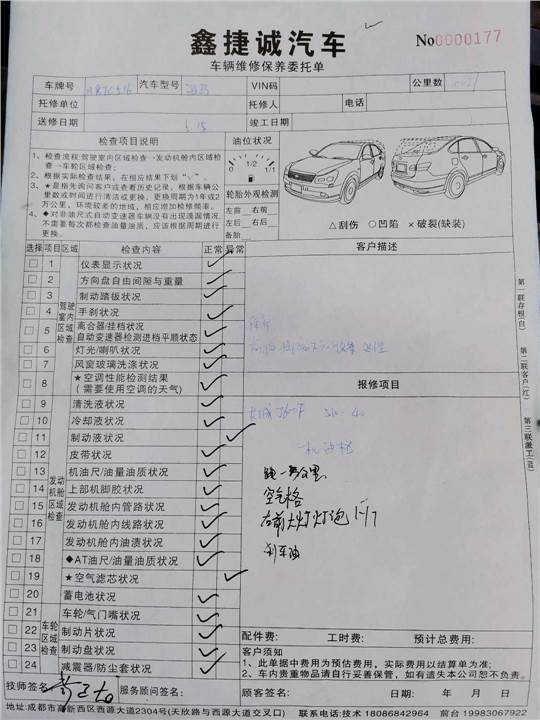 鑫捷诚汽车
No0000177
车辆维修保养委托单
车牌号 汽车型号 VIN码 公里数
托修单位 托修人 电话
送修日期 竣工日期
检查项目说明 油位状况
1、检查流程:驾驶室内区域检查—发动机舱内区域检查—车轮区域检查。
2、根据实际检查结果，在相应结果下划“√”。
3、★是指先询问客户或查看历史记录，根据车辆公里数或时间进行清洁或更换，更换周期为1年或2万公里，环境较差的地域，相应增加检修频率。
4、◆对非油尺式自动变速器车辆没有出现泄漏情况，不需要每次都检查油量油质，应该根据周期进行更换。
0 1/2 1/1
轮胎外观检测
左前 右前
左后 右后
备胎
△刮伤 ○凹陷 ×破裂(缺装)
选择 项目 区域 检查内容 正常 异常 客户描述
驾驶室内区域检查
1 仪表显示状况 ✓
2 方向盘自由间隙与重量 ✓
3 制动踏板状况 ✓
4 手刹状况 ✓
5 离合器/挂档状况
自动变速器检测进档平顺状态 ✓
6 灯光/喇叭状况 ✓
7 风窗玻璃洗涤状况 ✓
8 ★空调性能检测结果
（需要使用空调的天气） ✓
报修项目
发动机舱区域检查
9 清洗液状况 ✓
10 冷却液状况 ✓
11 制动液状况 ✓
12 皮带状况 ✓
13 机油尺/油量油质状况 ✓
14 上部机脚胶状况 ✓
15 发动机舱内管路状况 ✓
16 发动机舱内线路状况 ✓
17 发动机舱内油渍状况 ✓
18 ◆AT油尺/油量油质状况 ✓
19 ★空气滤芯状况 ✓
20 蓄电池状况 ✓
空气格
左前大灯灯泡 H7
刹车油
车轮区域检查
21 车轮/气门嘴状况 ✓
22 制动片状况 ✓
23 制动盘状况 ✓
24 减震器/防尘套状况 ✓
配件费: 工时费: 预计总费用:
客户须知
1、此单据中费用为预估费用，实际费用以结算单为准;
2、车内贵重物品请自行妥善保管，如有遗失本公司恕不负责。
技师签名: 服务顾问签名: 年 月 日 顾客签名: 日期: 年 月 日
地址:成都市高新西区西源大道2304号(天欣路与西源大道交叉口) 联系电话:技术18086842964 前台19983067922
第一联存根(白)
第二联客户(红)
第三联竣工(蓝)